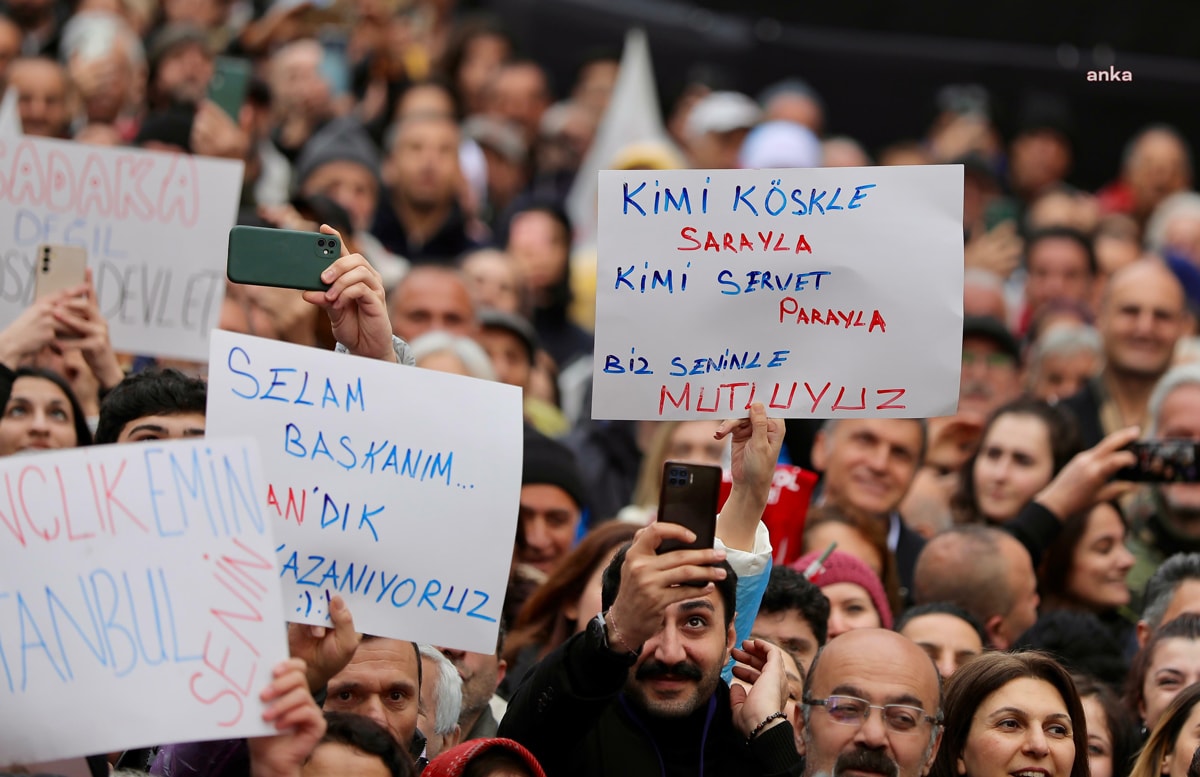 anka
SADAKA
DEĞİL
DEVLETİ
KİMİ KÖŞKLE
SARAYLA
KİMİ SERVET
PARAYLA
BİZ SENİNLE
MUTLUYUZ
SELAM
BAŞKANIM...
AN'DIK
KAZANIYORUZ
:)
NÇLIK EMİN
TANBUL
SENİN